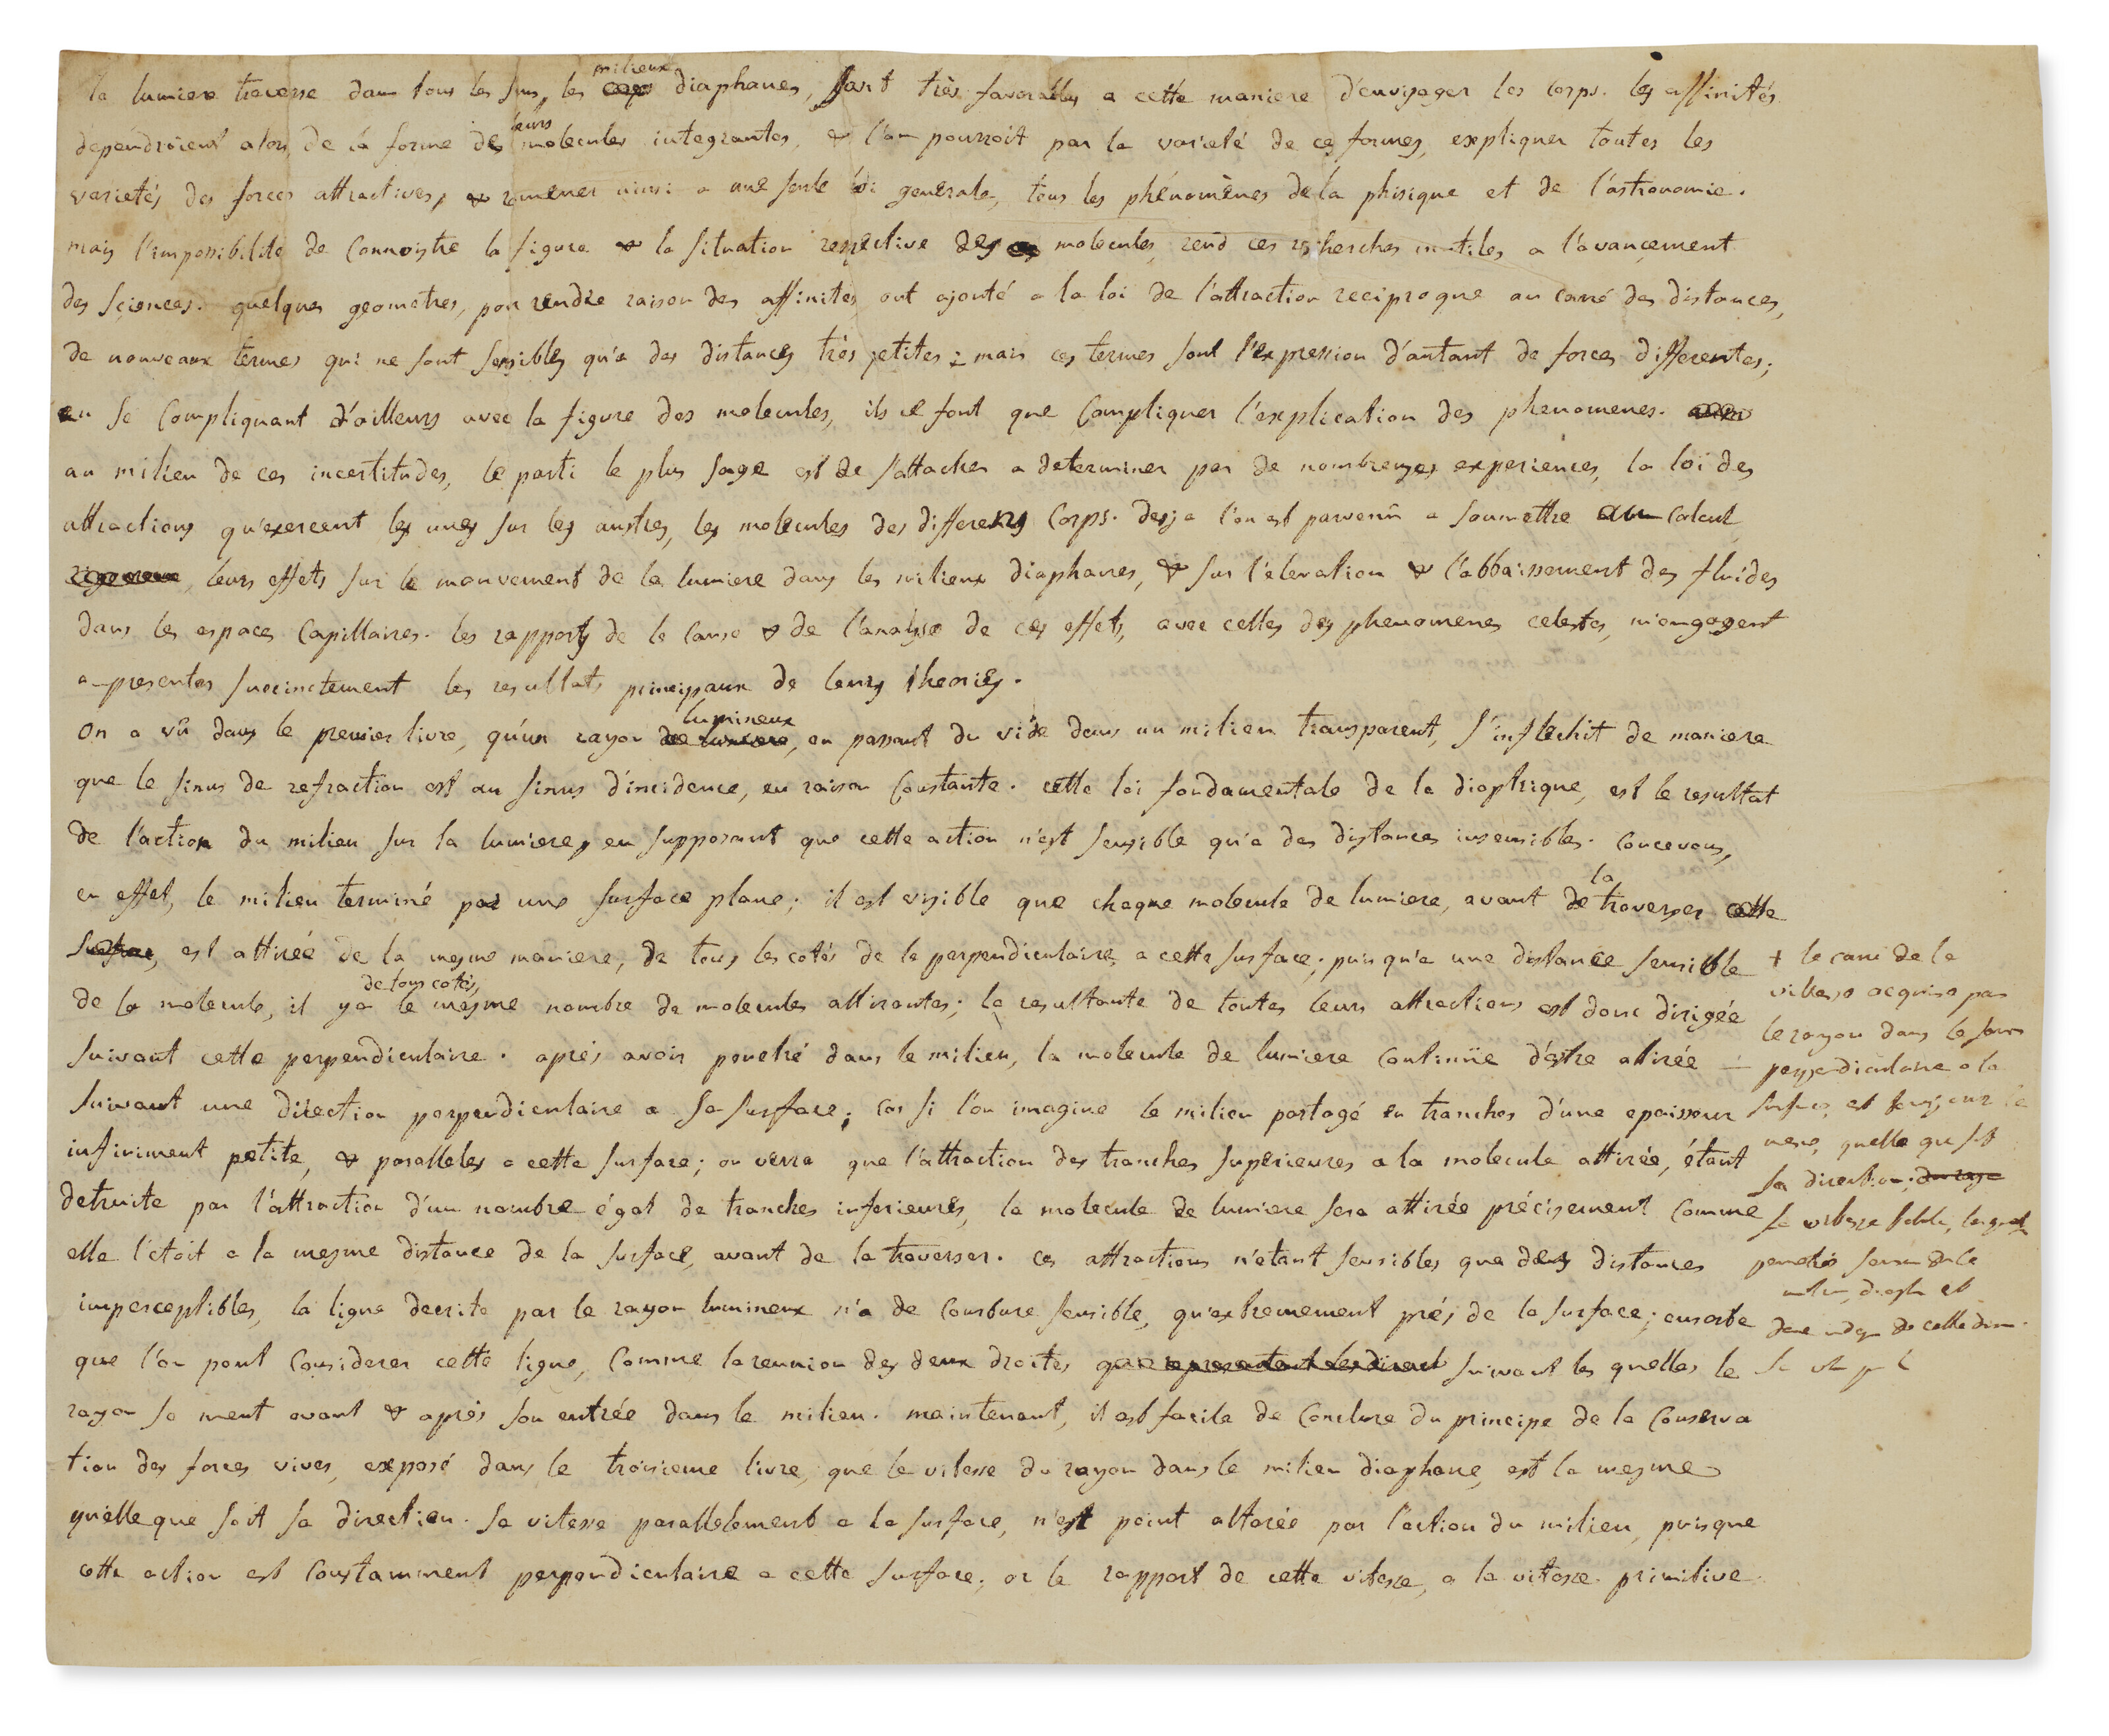 la lumiere traverse dans tous les sens, les milieux diaphanes, sont très favorables a cette maniere d'envisager les corps. les affinités
dependroient alors de la forme de leurs molecules integrantes, & l'on pourroit par la varieté de ces formes, expliquer toutes les
varietés des forces attractives, & ramener ainsi a une seule loi generale, tous les phénomènes de la phisique et de l'astronomie.
mais l'impossibilité de connoistre la figure & la situation respective des molecules, rend ces recherches inutiles a l'avancement
des sciences. quelques geometres, pour rendre raison des affinites, ont ajouté a la loi de l'attraction reciproque au carré des distances,
de nouveaux termes qui ne sont sensibles qu'a des distances très petites; mais ces termes sont l'expression d'autant de forces differentes;
en se compliquant d'ailleurs avec la figure des molecules, ils ne font que compliquer l'explication des phenomenes.
au milieu de ces incertitudes, le parti le plus sage est de s'attacher a determiner par de nombreuses experiences, la loi des
attractions qu'exercent les unes sur les austres, les molecules des differens corps. desja l'on est parvenu a soumettre au calcul
rigoureux, leurs effets sur le mouvement de la lumiere dans les milieux diaphanes, & sur l'elevation & l'abbaissement des fluides
dans les espaces capillaires. les rapports de la cause & de l'analyse de ces effets, avec celles des phenomenes celestes, m'engagent
a presenter succinctement les resultats principaux de leurs theories.
On a vû dans le premier livre, qu'un rayon de lumiere lumineux, en passant du vide dans un milieu transparent, s'inflechit de maniere
que le sinus de refraction est au sinus d'incidence, en raison constante. cette loi fondamentale de la dioptrique, est le resultat
de l'action du milieu sur la lumiere, en supposant que cette action n'est sensible qu'a des distances insensibles. concevons,
en effet, le milieu terminé par une surface plane; il est visible que chaque molecule de lumiere, avant de la traverser cette
surface, est attirée de la mesme maniere, de tous les cotés de la perpendiculaire a cette surface; puis qu'a une distance sensible
de la molecule, il y a de tous cotés, le mesme nombre de molecules attirantes; la resultante de toutes leurs attractions est donc dirigée
suivant cette perpendiculaire. après avoir penetré dans le milieu, la molecule de lumiere continüe d'estre attirée
suivant une direction perpendiculaire a sa surface; car si l'on imagine le milieu partagé en tranches d'une epaisseur
infiniment petite, & paralleles a cette surface; on verra que l'attraction des tranches superieures a la molecule attirée, étant
detruite par l'attraction d'un nombre égal de tranches inferieures, la molecule de lumiere sera attirée précisement comme
elle l'étoit a la mesme distance de la surface, avant de la traverser. ces attractions n'étant sensibles que dans distances
imperceptibles, la ligne decrite par le rayon lumineux n'a de courbure sensible, qu'extremement près de la surface; ensorte
que l'on peut considerer cette ligne, comme la reunion des deux droites qui representent les direct suivant les quelles le
rayon se meut avant & après son entrée dans le milieu. maintenant, il est facile de conclure du principe de la conserva
tion des forces vives, exposé dans le troisieme livre, que la vitesse du rayon dans le milieu diaphane, est la mesme
quelle que soit sa direction. sa vitesse parallelement a la surface, n'est point alterée par l'action du milieu, puisque
cette action est constamment perpendiculaire a cette surface; or le rapport de cette vitesse, a la vitesse primitive
+ le carré de la
vitesse acquise par
le rayon dans le sens
perpendiculaire a la
surface, est tousjours le
mesme, quelle que soit
sa direction;